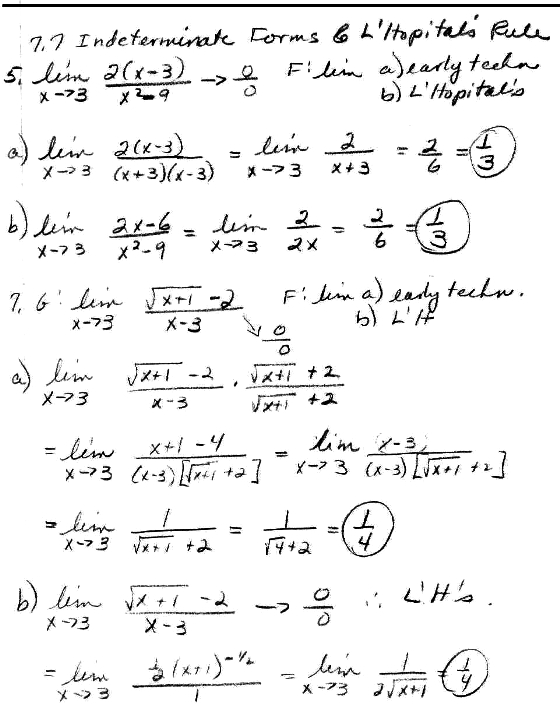 7.7 Indeterminate Forms & L'Hopital's Rule
5. lim x->3 2(x-3)/(x²-9) -> 0/0 F: lim a) early techn
b) L'Hopital's
a) lim x->3 2(x-3)/((x+3)(x-3)) = lim x->3 2/(x+3) = 2/6 = 1/3
b) lim x->3 (2x-6)/(x²-9) = lim x->3 2/(2x) = 2/6 = 1/3
7. G: lim x->3 (√(x+1) -2)/(x-3) F: lim a) early techn.
b) L'H
0/0
a) lim x->3 (√(x+1) -2)/(x-3) · (√(x+1) +2)/(√(x+1) +2)
= lim x->3 (x+1-4)/((x-3)[√(x+1) +2]) = lim x->3 (x-3)/((x-3)[√(x+1) +2])
= lim x->3 1/(√(x+1) +2) = 1/(√4+2) = 1/4
b) lim x->3 (√(x+1) -2)/(x-3) -> 0/0 ∴ L'H's.
= lim x->3 (½(x+1)^(-1/2))/1 = lim x->3 1/(2√(x+1)) = 1/4